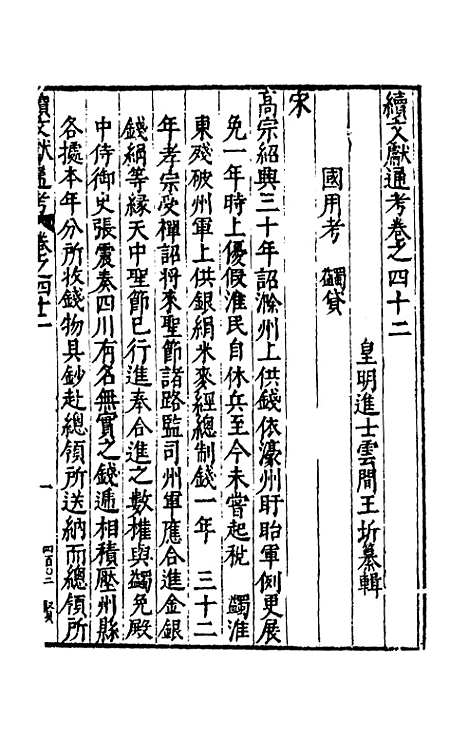 續文獻通考卷之四十二
皇明進士雲間王圻纂輯
國用考 蠲貸
宋
高宗紹興三十年詔滁州上供錢依濠州盱眙軍例更展
免一年時上優假淮民自休兵至今未嘗起稅 蠲淮
東殘破州軍上供銀絹米麥經總制錢一年 三十二
年孝宗受禪詔將來聖節諸路監司州軍應合進金銀
錢絹等緣天中聖節已行進奉合進之數權與蠲免殿
中侍御史張震奏四川有名無實之錢遞相積壓州縣
各據本年分所收錢物具鈔赴總領所送納而總領所
續文獻通考 卷之四十二
一
四百〇二
賢